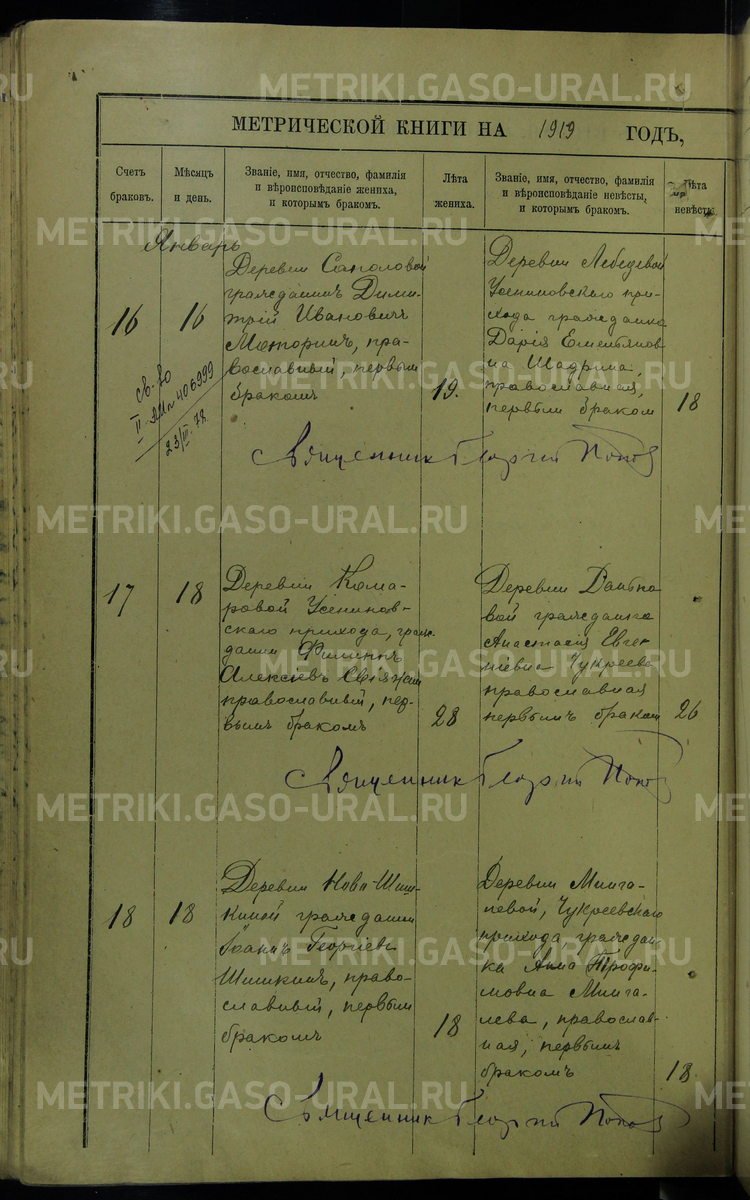 МЕТРИЧЕСКОЙ КНИГИ НА 1919 ГОДЪ,
Счетъ браковъ.
Мѣсяцъ и день.
Званіе, имя, отчество, фамилія
и вѣроисповѣданіе жениха,
и которымъ бракомъ.
Лѣта
жениха.
Званіе, имя, отчество, фамилія
и вѣроисповѣданіе невѣсты,
и которымъ бракомъ.
Лѣта
невѣсты
Январь
16
16
Деревни Соколовой
гражданинъ Дими-
трій Ивановичъ
Моторинъ, пра-
вославный, первым
бракомъ
19.
Деревни Лебедевой
Усениновскаго при-
хода гражданка
Дарія Емельянов-
на Шадрина,
православная,
первым браком
18
св-во
II-АИ № 406999
23/III-78.
Священник Георгий Попов
17
18
Деревни Кома-
ровой Усенинов-
скаго прихода, граж-
данин Филиппъ
Алексѣевъ
православный, пер-
вымъ бракомъ
28
Деревни
вой гражданка
Анастасія Евге-
ніевна Чукреева
православная
первымъ бракомъ
26
Священник Георгий Попов
18
18
Деревни Ново-Шиш-
киной гражданин
Іоаннъ Георгіевъ
Шишкинъ, право-
славный, первым
бракомъ
18
Деревни Минга-
левой, Чукреевскаго
прихода граждан-
ка Анна Трофи-
мовна Минга-
лева, православ-
ная, первымъ
бракомъ
18.
Священник Георгий Попов
METRIKI.GASO-URAL.RU